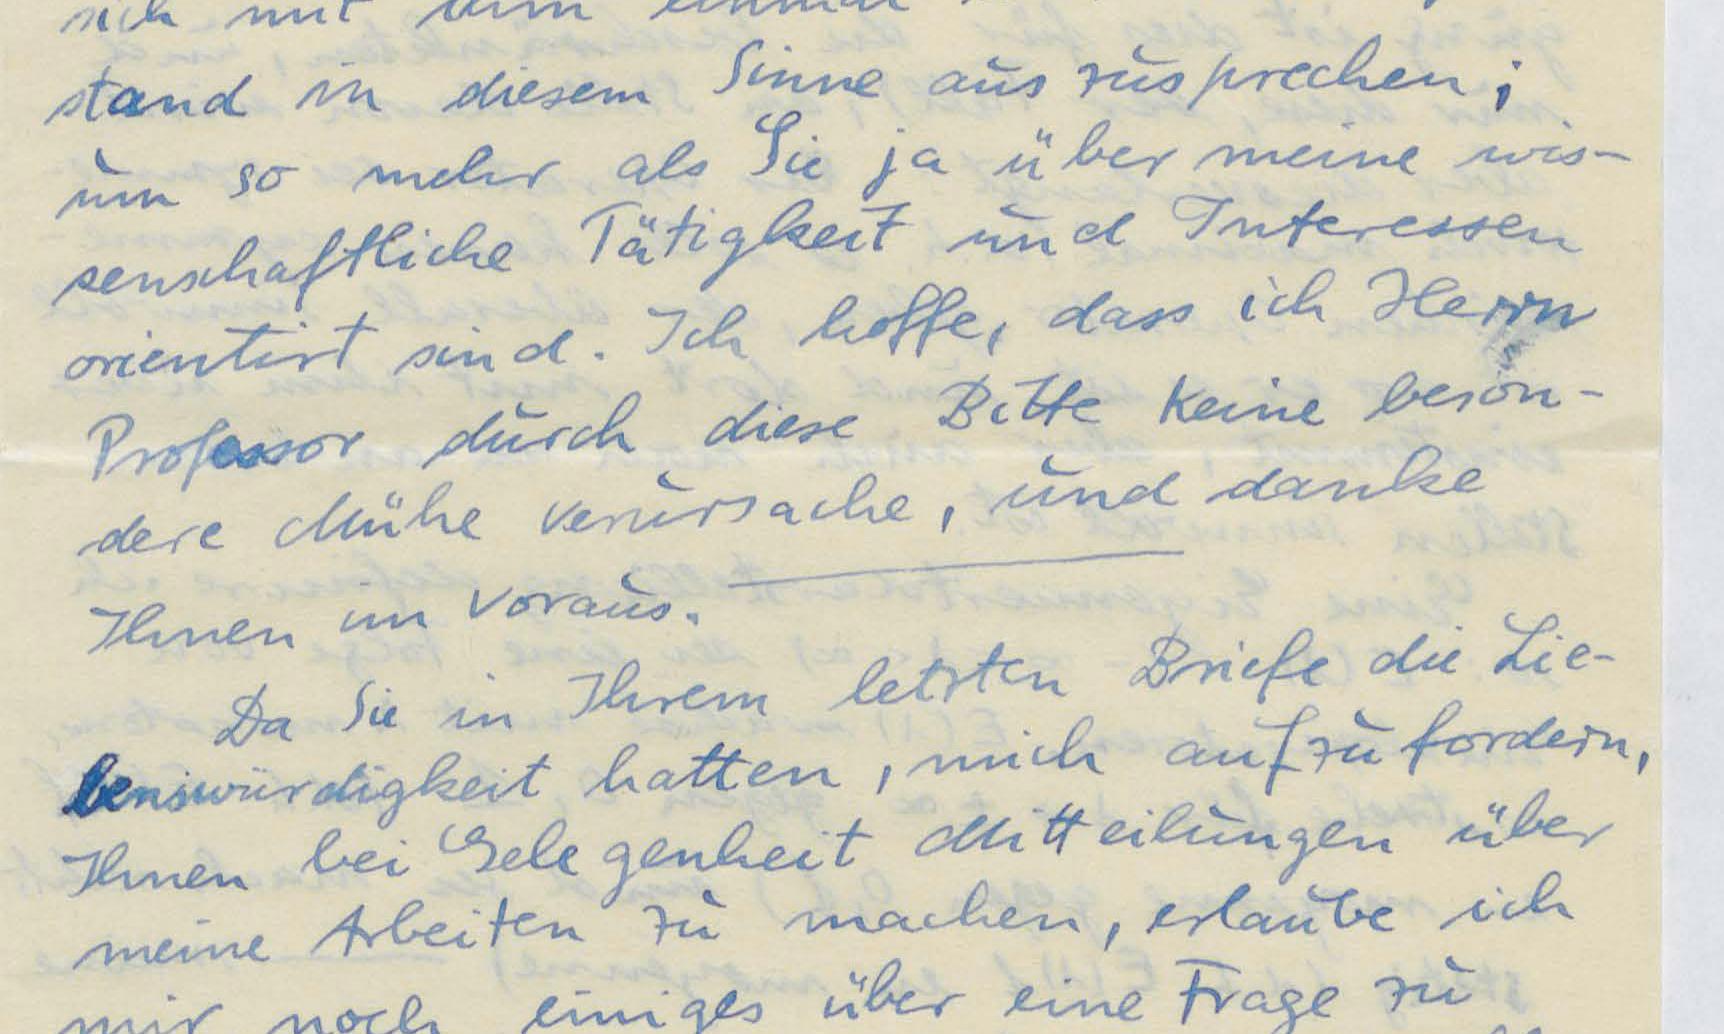 sich mit dem einmal
stand in diesem Sinne auszusprechen;
um so mehr als Sie ja über meine wis-
senschaftliche Tätigkeit und Interessen
orientirt sind. Ich hoffe, dass ich Herrn
Professor durch diese Bitte keine beson-
dere Mühe verursache, und danke
Ihnen im voraus.
Da Sie in Ihrem letzten Briefe die Lie-
benswürdigkeit hatten, mich aufzufordern,
Ihnen bei Gelegenheit Mitteilungen über
meine Arbeiten zu machen, erlaube ich
mir noch einiges über eine Frage zu